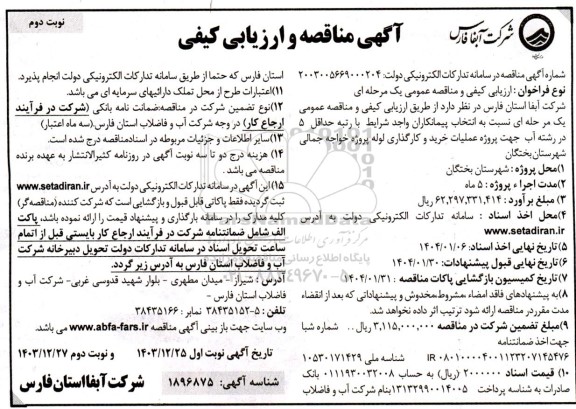 نوبت دوم
شرکت آبفا فارس
آگهی مناقصه و ارزیابی کیفی
شماره آگهی مناقصه در سامانه تدارکات الکترونیکی دولت: ۲۰۰۳۰۰۵۶۶۹۰۰۰۲۰۴
نوع فراخوان: ارزیابی کیفی و مناقصه عمومی یک مرحله ای
شرکت آبفا استان فارس در نظر دارد از طریق ارزیابی کیفی و مناقصه عمومی
یک مرحله ای نسبت به انتخاب پیمانکاران واجد شرایط با رتبه حداقل ۵
در رشته آب جهت پروژه عملیات خرید و کارگذاری لوله پروژه خواجه جمالی
شهرستان بختگان
۱) محل پروژه: شهرستان بختگان
۲) مدت اجراء پروژه: ۵ ماه
۳) مبلغ برآورد: ۶۲,۲۹۷,۳۳۱,۴۱۴ ریال
۴) محل اخذ اسناد: سامانه تدارکات الکترونیکی دولت به آدرس
www.setadiran.ir
۵) تاریخ نهایی اخذ اسناد: ۱۴۰۴/۰۱/۰۶
۶) تاریخ نهایی قبول پیشنهادات: ۱۴۰۴/۰۱/۳۰
۷) تاریخ کمیسیون بازگشایی پاکات مناقصه: ۱۴۰۴/۰۱/۳۱
۸) به پیشنهادهای فاقد امضاء، مشروط، مخدوش و پیشنهاداتی که بعد از انقضاء
مدت مقرر در مناقصه ارائه شود ترتیب اثر داده نخواهد شد.
۹) مبلغ تضمین شرکت در مناقصه ۳,۱۱۵,۰۰۰,۰۰۰ ریال.. شماره شبا
جهت اخذ ضمانتنامه
IR ۰۸۰۱۰۰۰۰۴۰۰۱۱۲۳۲۰۷۱۴۵۴۷۶ شناسه ملی ۱۰۵۳۰۱۷۱۴۲۹
۱۰) قیمت اسناد ۲۰۰۰۰۰۰ (ریال) به حساب ۰۱۱۱۹۳۰۰۳۲۰۰۸ بانک
صادرات به شناسه پرداخت ۱۳۱۳۲۹۹۰۰۱۴۰۰۵ بنام شرکت آب و فاضلاب
استان فارس که حتما از طریق سامانه تدارکات الکترونیکی دولت انجام پذیرد.
۱۱) اعتبارات طرح از محل تملک دارائیهای سرمایه ای می باشد.
۱۲) نوع تضمین شرکت در مناقصه: ضمانت نامه بانکی (شرکت در فرآیند
ارجاع کار) در وجه شرکت آب و فاضلاب استان فارس. (سه ماه اعتبار)
۱۳) سایر اطلاعات و جزئیات مربوطه در اسناد مناقصه درج شده است.
۱۴) هزینه درج دو تا سه نوبت آگهی در روزنامه کثیرالانتشار به عهده برنده
مناقصه می باشد.
۱۵) این آگهی در سامانه تدارکات الکترونیکی دولت به آدرس www.setadiran.ir
ثبت گردیده فقط پاکاتی قابل قبول و بازگشایی است که شرکت کننده (مناقصه گر)
کلیه مدارک را در سامانه بارگذاری و پیشنهاد قیمت را ارائه نموده باشد، پاکت
الف شامل ضمانتنامه شرکت در فرآیند ارجاع کار بایستی قبل از اتمام
ساعت تحویل اسناد در سامانه تدارکات دولت تحویل دبیرخانه شرکت
آب و فاضلاب استان فارس به آدرس زیر گردد.
آدرس: شیراز - میدان مطهری - بلوار شهید قدوسی غربی - شرکت آب و
فاضلاب استان فارس -
تلفن: ۵-۳۸۴۳۵۱۵۲ نمابر: ۳۸۴۳۵۱۶۶
وب سایت جهت بازبینی آگهی مناقصه www.abfa-fars.ir می باشد.
تاریخ آگهی نوبت اول ۱۴۰۳/۱۲/۲۵ و نوبت دوم ۱۴۰۳/۱۲/۲۷
شناسه آگهی: ۱۸۹۶۸۷۵
شرکت آبفا استان فارس